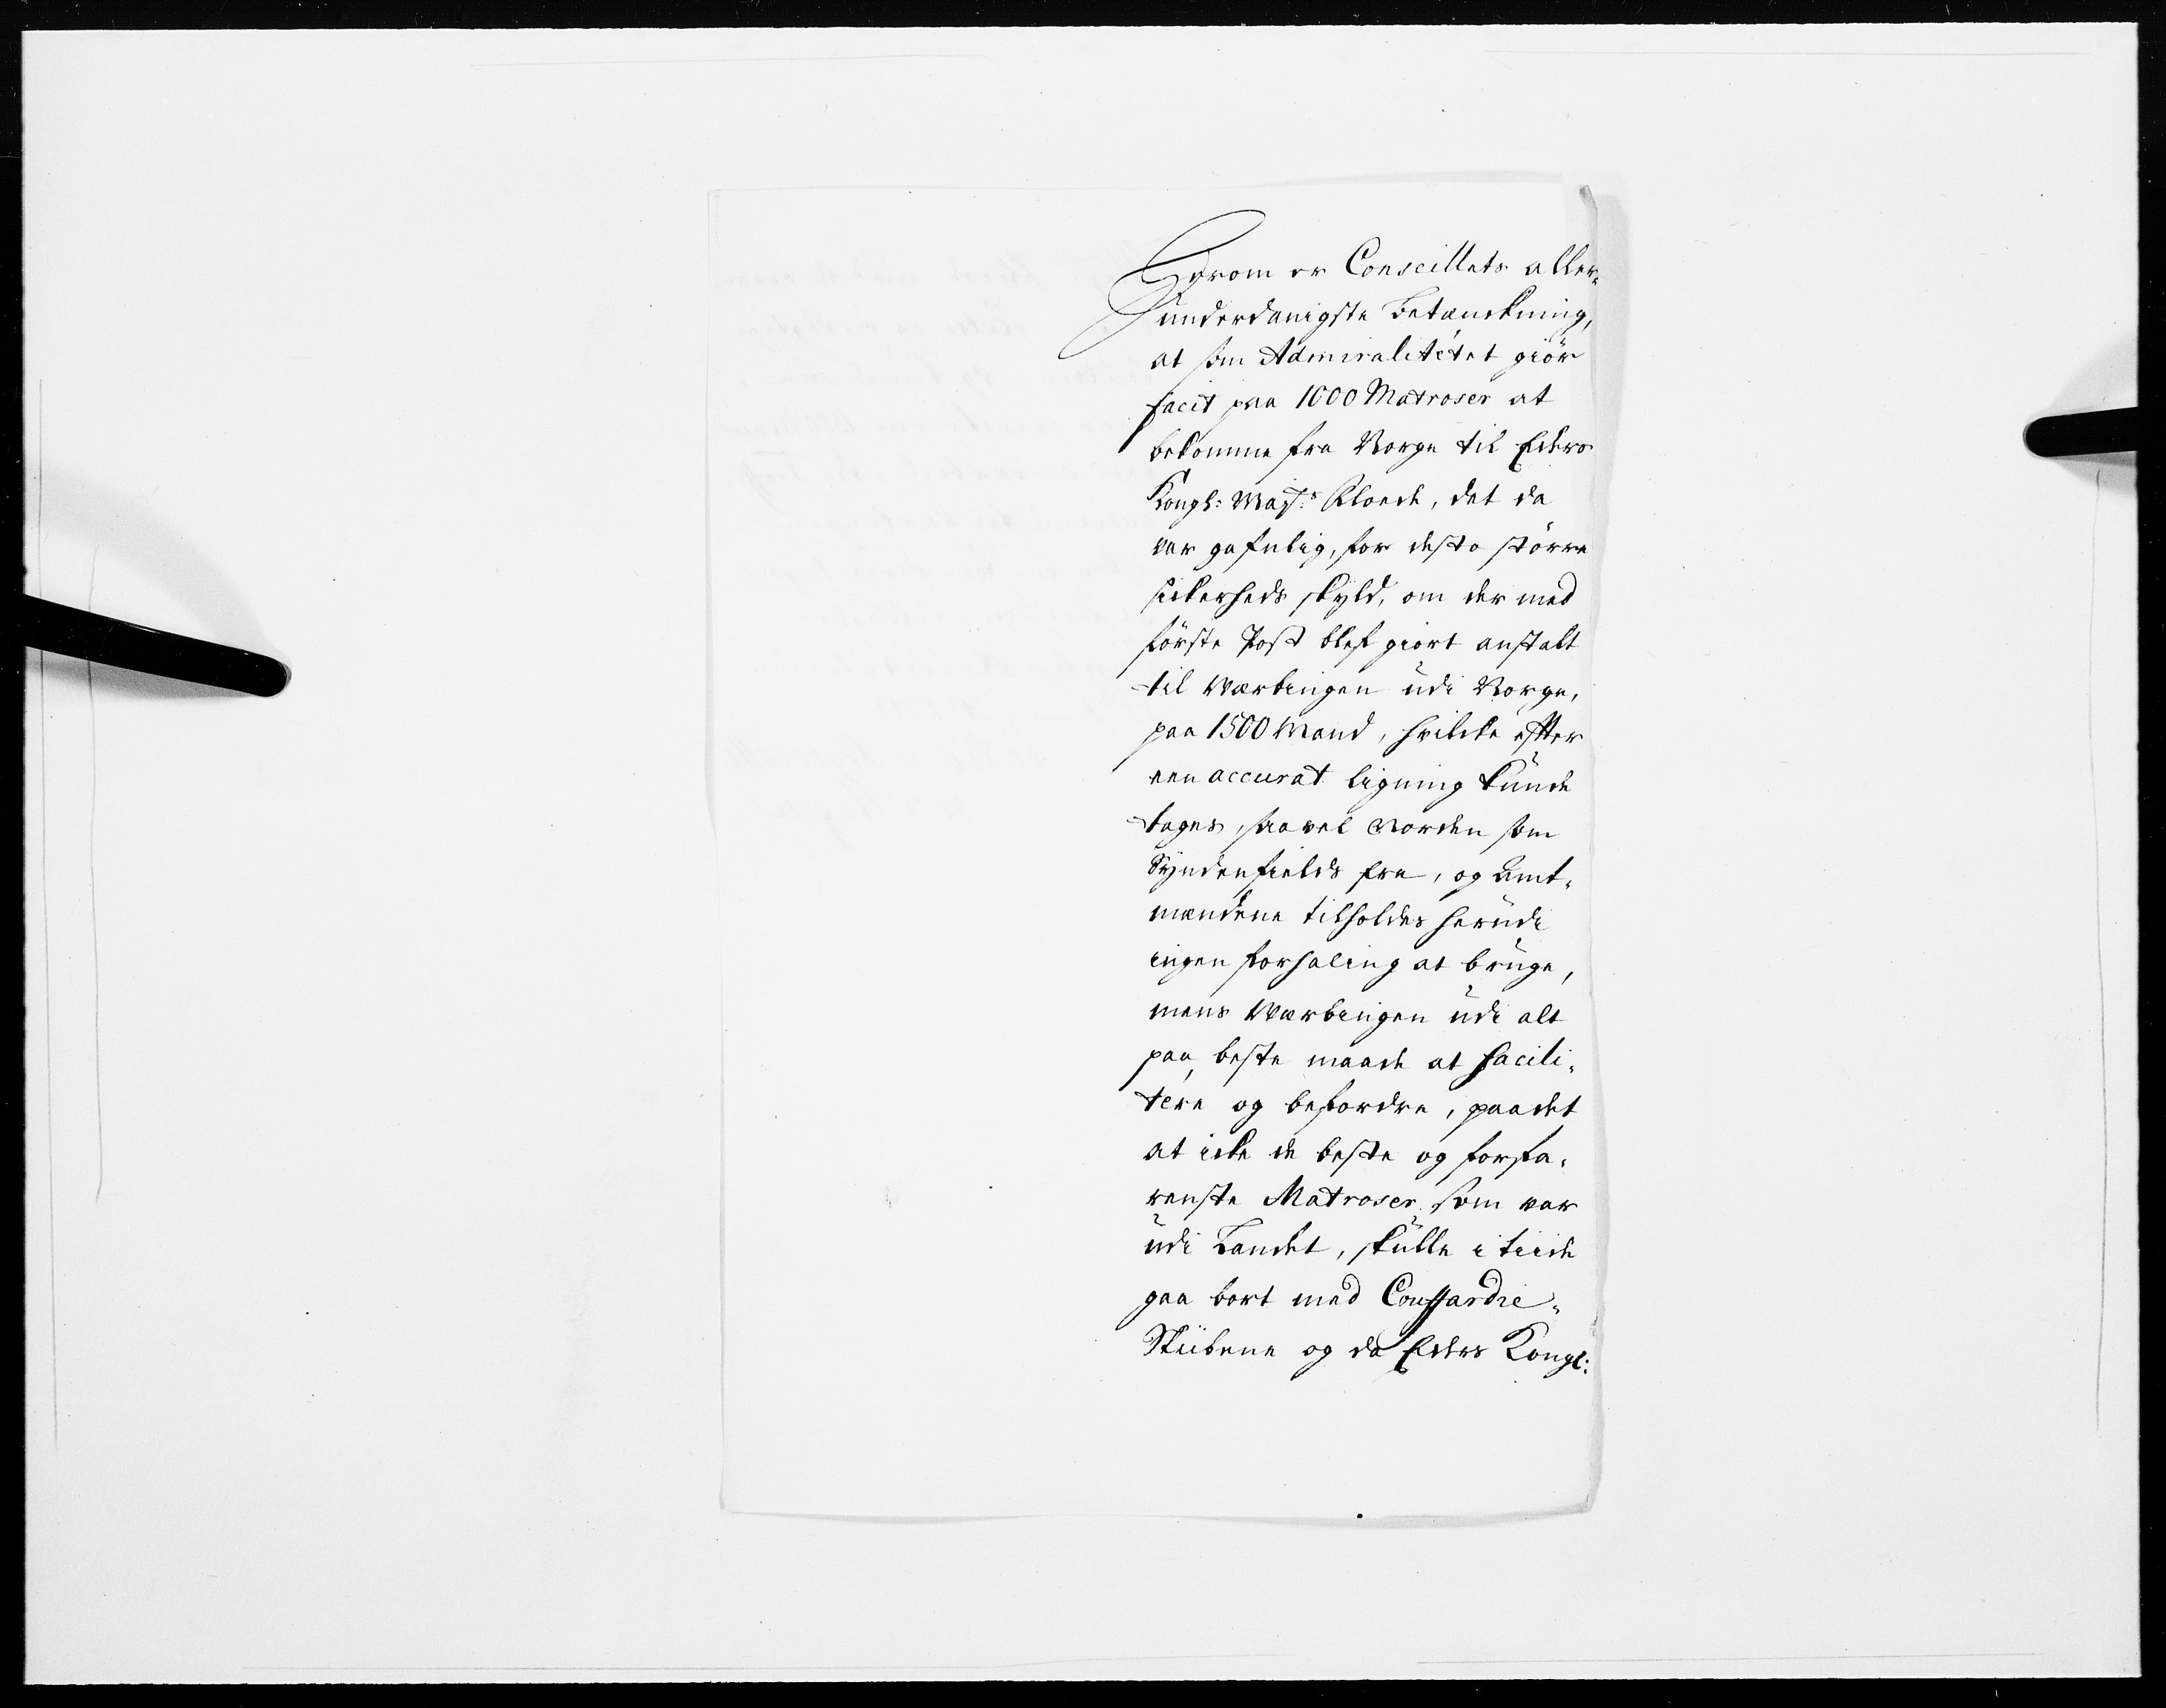 Herom er Conseillets aller-
underdanigste Betænckning,
at som Admiralitétet giör
facit paa 1000 Matroser at
bekomme fra Norge til Eders
Kongl: Mays: Floede, det da
var gafnlig, for desto större
sickerheds skyld, om der med
förste Post blef giort anstalt
til Værbingen udi Norge,
paa 1500 Mand, hvilcke effter
een accurat ligning kunde
tages, saavel Norden som
Syndenfields fra, og Amt-
mændene tilholdes herudi
ingen forhaling at bruge,
mens Værbingen udi alt
paa beste maade at facili-
tére og befordre, paa det
at icke de beste og forfa-
renste Matroser som var
udi Landet, skulle i tiide
gaa bort med Couffardie-
Skibene og da Eders Kongl: